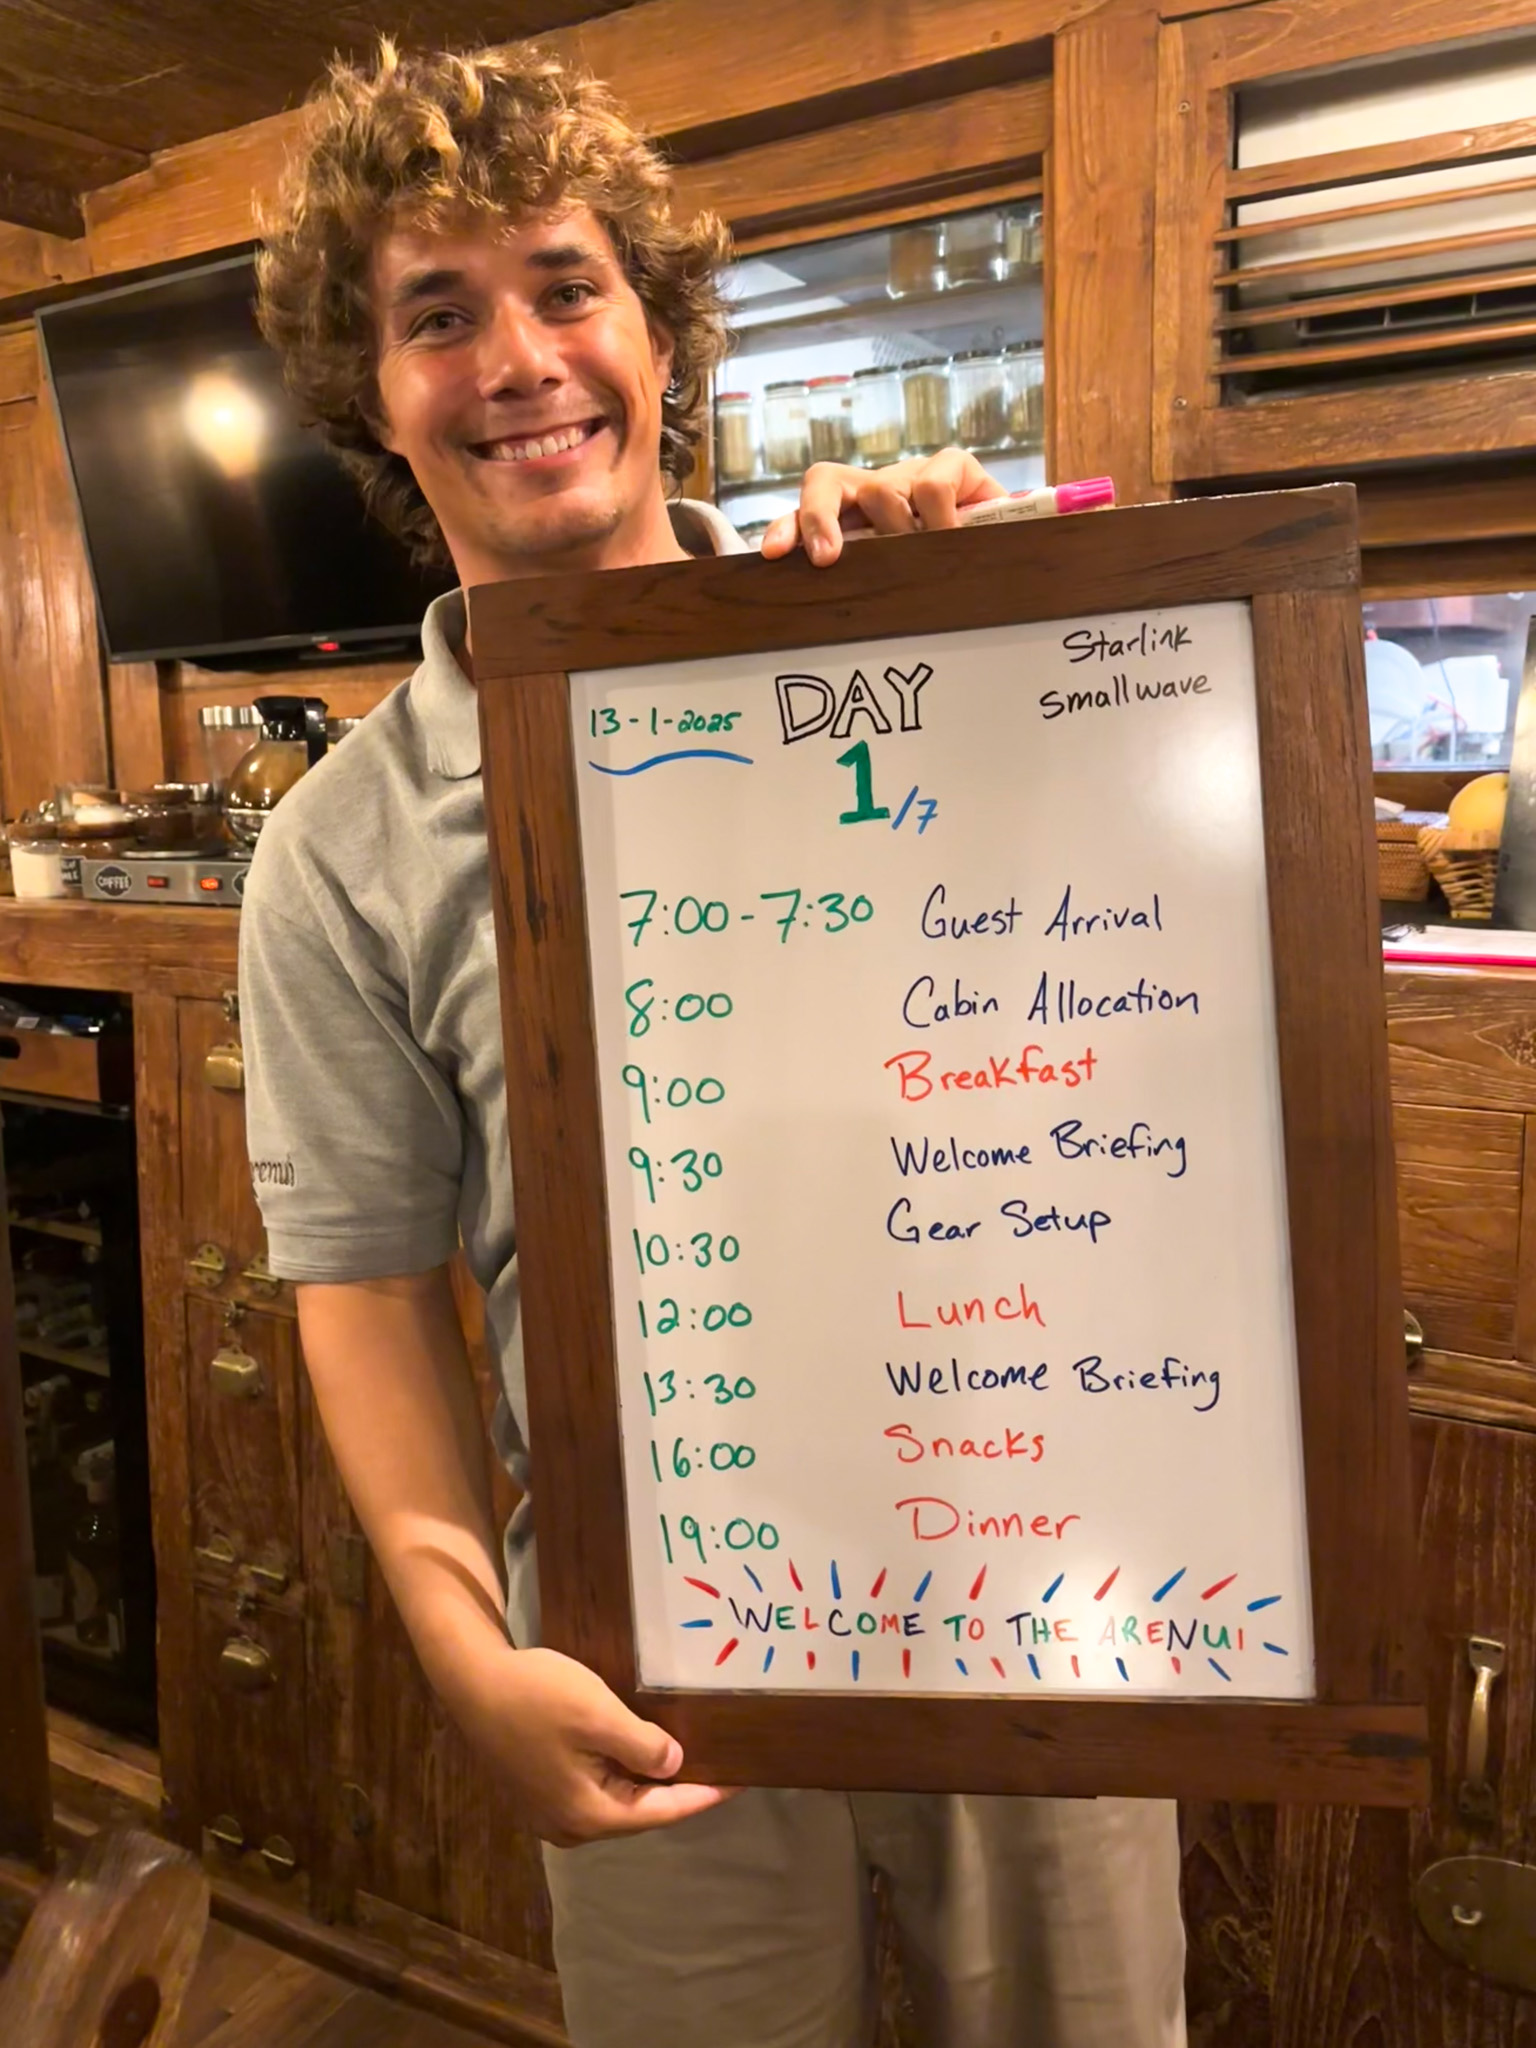 13-1-2025
DAY
1/7
Starlink
smallwave
7:00-7:30 Guest Arrival
8:00 Cabin Allocation
9:00 Breakfast
9:30 Welcome Briefing
10:30 Gear Setup
12:00 Lunch
13:30 Welcome Briefing
16:00 Snacks
19:00 Dinner
WELCOME TO THE ARENUI
COFFEE